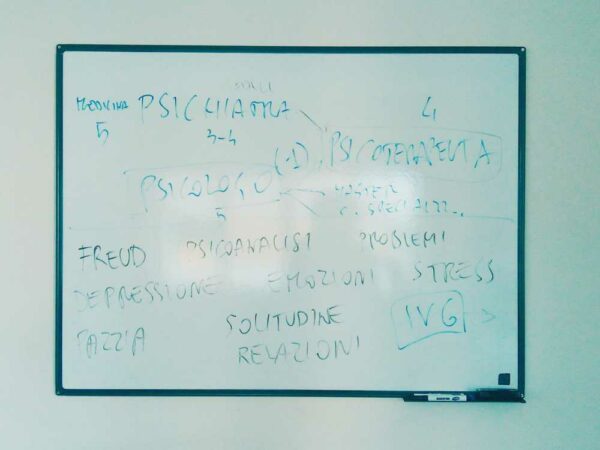 MEDICINA PSICHIATRA 4
5 3-4
(+1) PSICOTERAPEUTA
PSICOLOGO MASTER
5 C. SPECIALIZZ.
FREUD PSICOANALISI PROBLEMI
DEPRESSIONE EMOZIONI STRESS
PAZZIA SOLITUDINE IVG
RELAZIONI